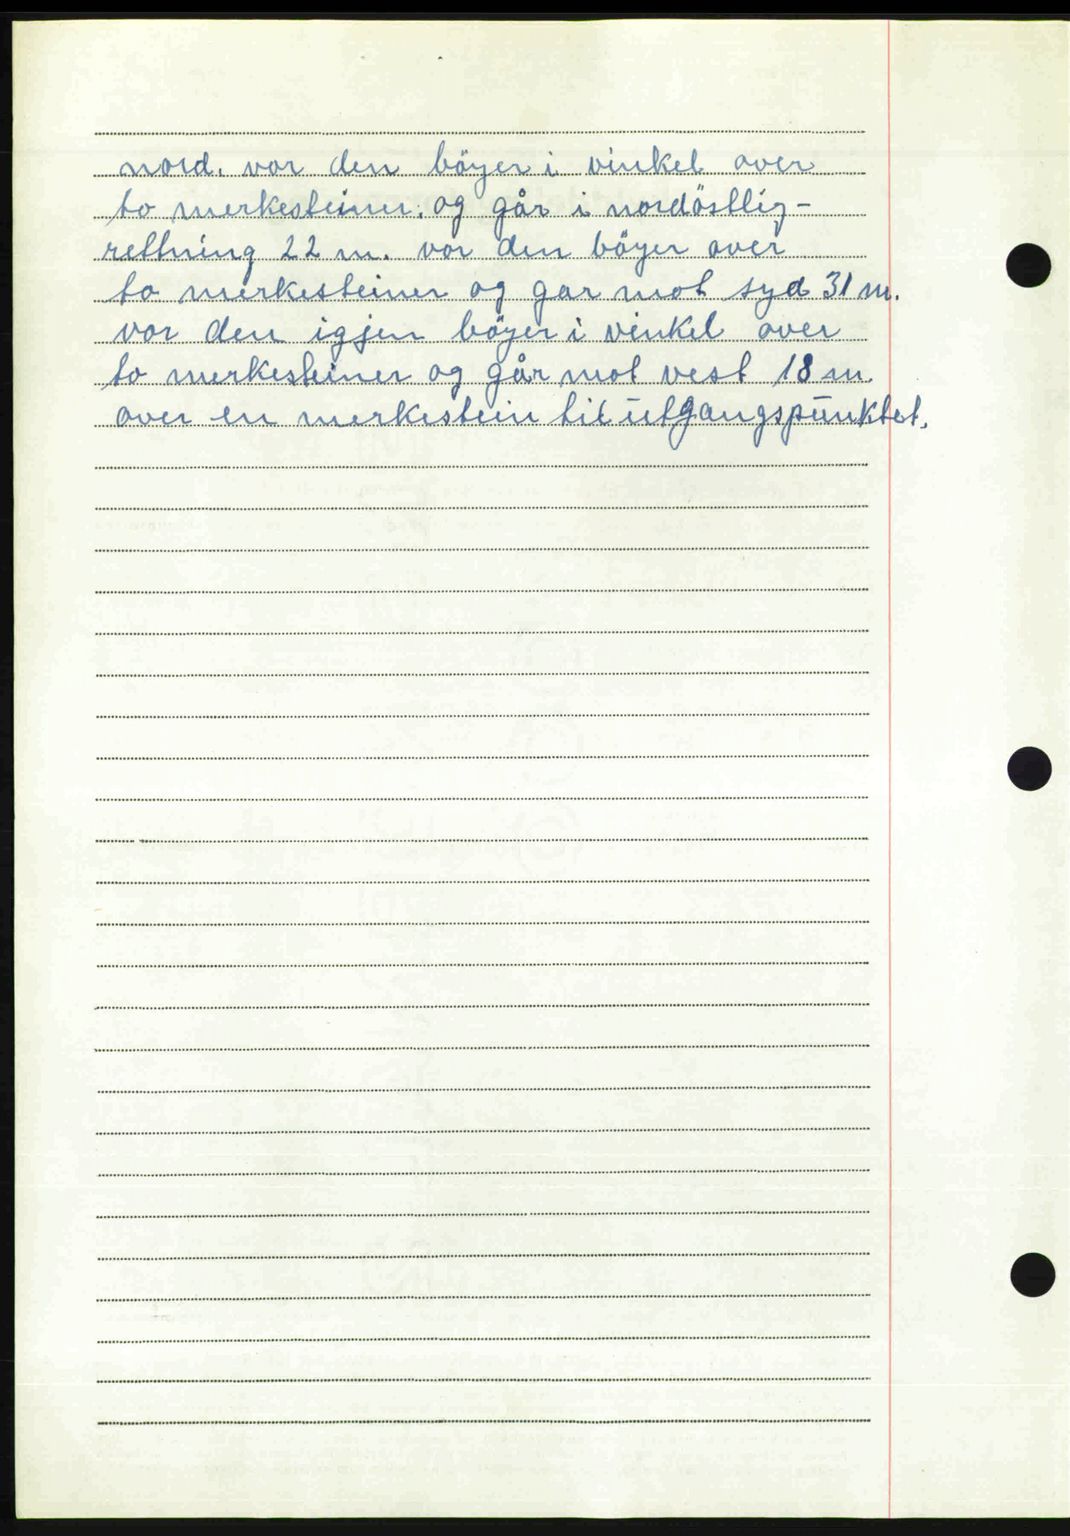 nord. vor den böyer i vinkel over
to merkesteiner. og går i nordöstlig-
rettning 22 m. vor den böyer over
to merkesteiner og gar mot syd 31 m.
vor den igjen böyer i vinkel over
to merkesteiner og går mot vest 18 m.
over en merkestein til utgangspunktet.